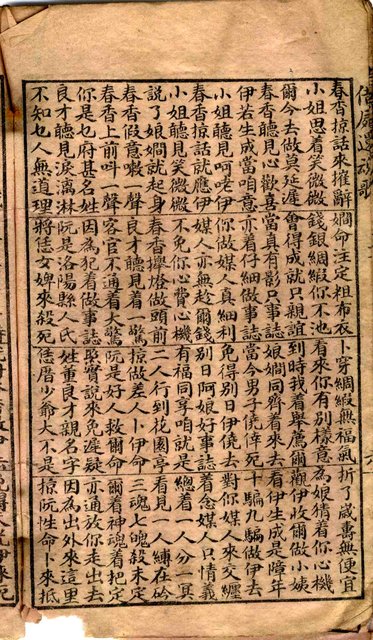 借屍還魂歌
春香掠話來摧辭 嫺命注定粗布衣 卜穿綢緞無福氣 折了歲壽無便宜
小姐思着笑微微 錢銀綢緞你不池 看來你有別樣意 為娘猜着你心機
爾今去做莫延遲 會得成就只親誼 到時我着舉薦爾 觀伊收爾做小姨
春香聽見心歡喜 當真有影只事誌 娘嫺同齊着來去 看伊生成是障年
伊若生成當咱意 亦着仔細做事誌 當今男子僥倖死 十騙九騙做伊去
小姐聽見呵咾伊 你做媒人真細利 免得別日伊僥去 對你媒人來交纏
春香掠話就應伊 媒人亦無趁爾錢 別日阿娘好事誌 着念媒人只情義
小姐聽見笑微微 不免你心費心機 有福同享咱就是 總着一人分一冥
說了娘嫺就起身 春香攑燈做頭前 二人行到花園亭 看見一人縛在砛
春香假意噉一聲 良才聽見着一驚 掠做差人卜伊命 三魂七魄殺未定
春香上前叫一聲 客官不通着大驚 阮是好人救爾命 爾着神魂着把定
你是乜府甚名姓 因為犯着做事誌 緊實說來免遲疑 亦通放你走出去
良才聽見淚漓淋 阮是洛陽縣人氏 姓董良才親名字 因為出外來這里
不知乜人無道理 將恁女婢來殺死 恁厝少爺大不是 掠阮性命卜來抵